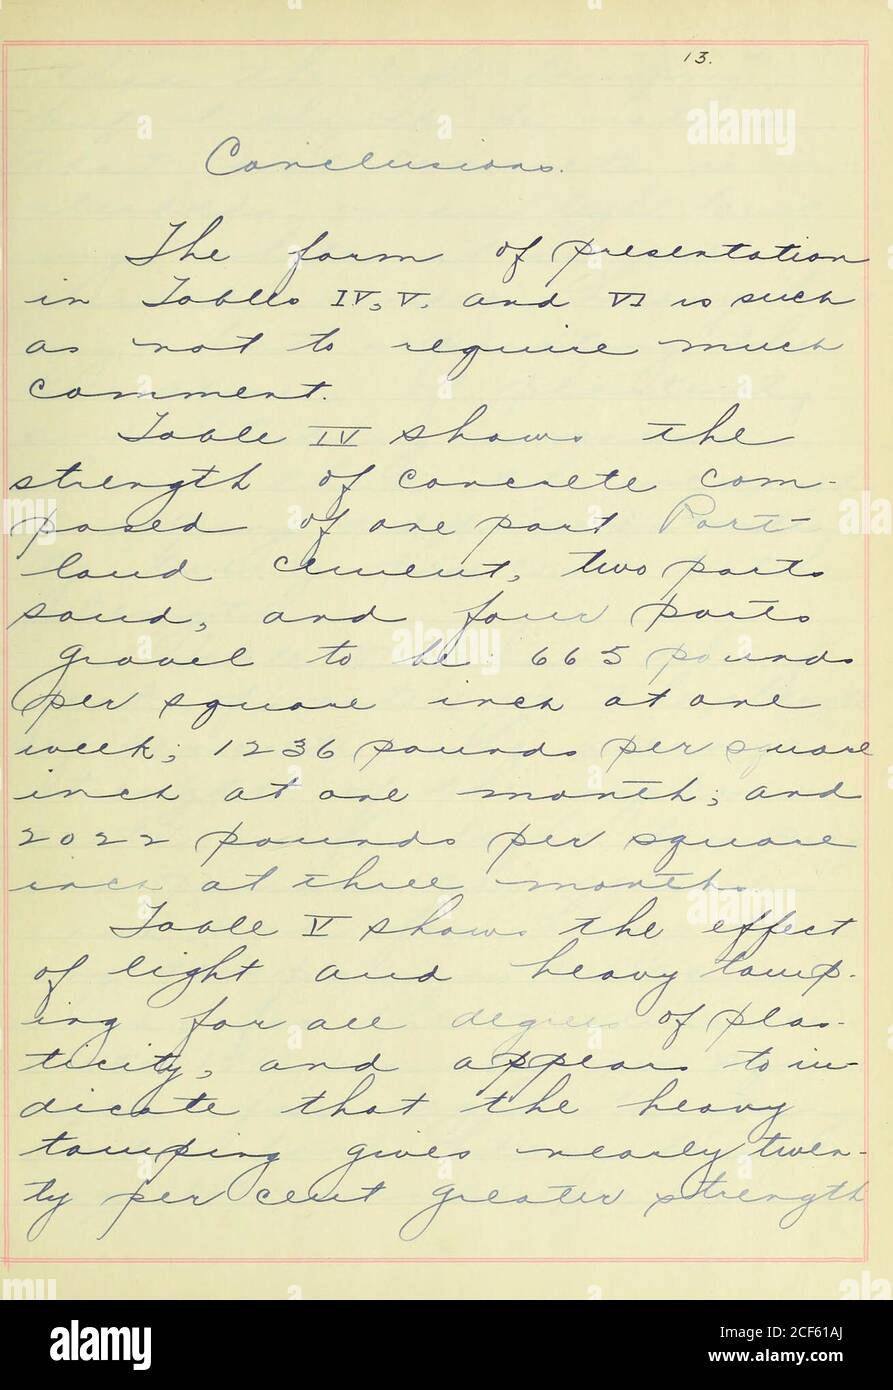 13.
Conclusions.
The form of presentation
in Tables IV, V, and VI is such
as not to require much
comment.
Table IV shows the
strength of concrete com-
posed of one part Port-
land cement, two parts
sand, and four parts
gravel to be 665 pounds
per square inch at one
week; 1236 pounds per square
inch at one month; and
2022 pounds per square
inch at three months.
Table V shows the effect
of light and heavy tamp-
ing for all degrees of plas-
ticity, and appears to in-
dicate that the heavy
tamping gives nearly twen-
ty per cent greater strength
alamy
Image ID: 2CF61AJ
www.alamy.com